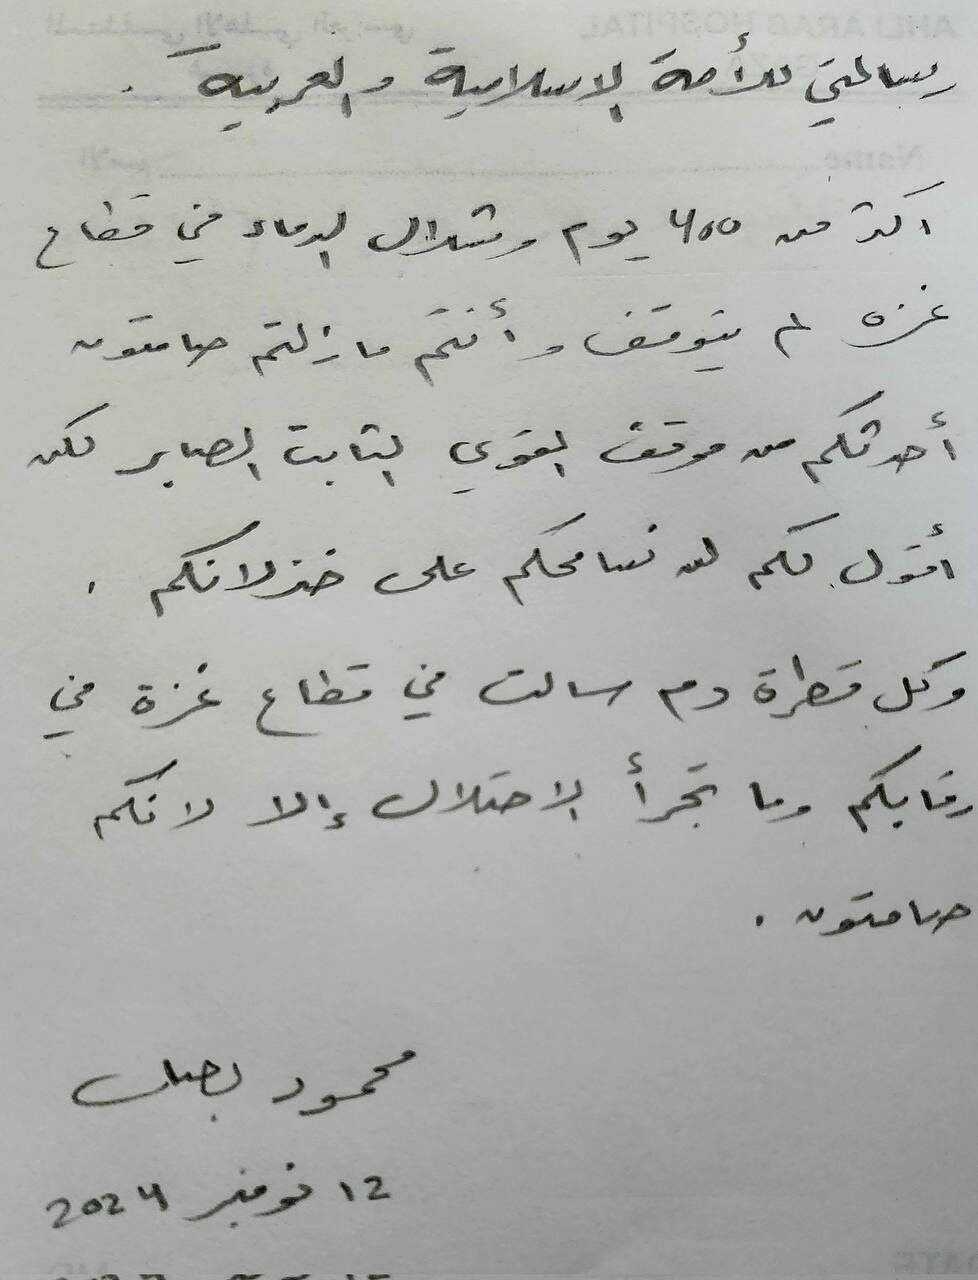 رسالتي للأمة الإسلامية والعربية .
اكثر من 400 يوم وشلال الدماء في قطاع
غزه لم يتوقف وأنتم مازلتم صامتون
أحدثكم من موقف القوي الثابت الصابر لكن
أقول لكم لن نسامحكم على خذلانكم .
وكل قطرة دم سالت في قطاع غزة في
رقابكم وما تجرأ الاحتلال إلا لانكم
صامتون .
محمود بصل
12 نوفمبر 2024